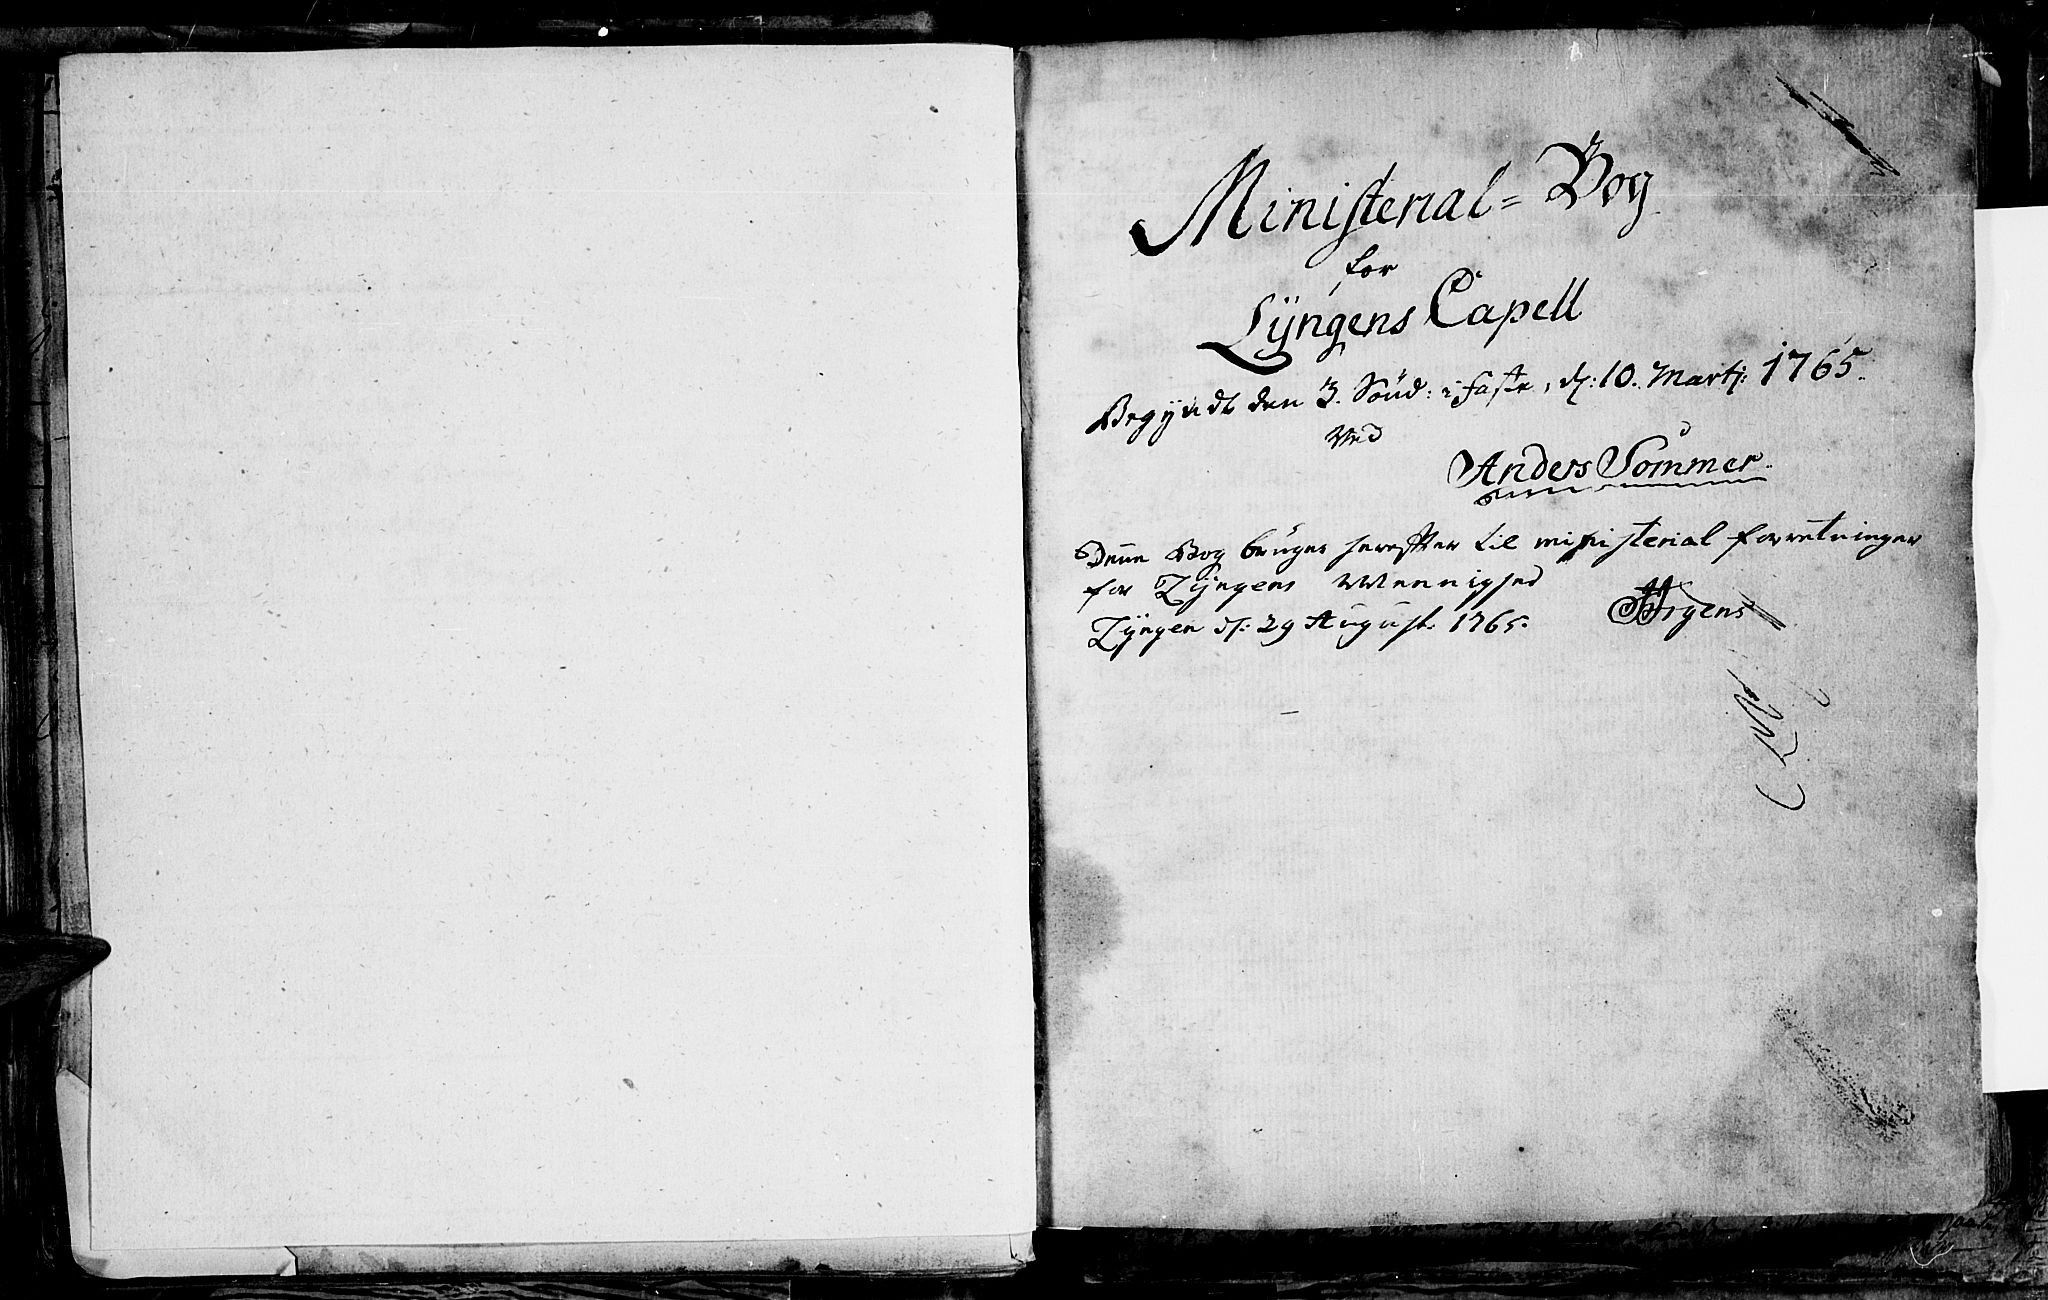 Ministerial= Bog
for
Lÿngens Capell
Begÿndt den 3. Sönd: i Faste, d: 10. Martj: 1765.
Ved
Anders Sommer.
Denne Bog bruges herefter til ministerial forretninger
for Lÿngens Mennighed
Lÿngen d: 29 August: 1765.